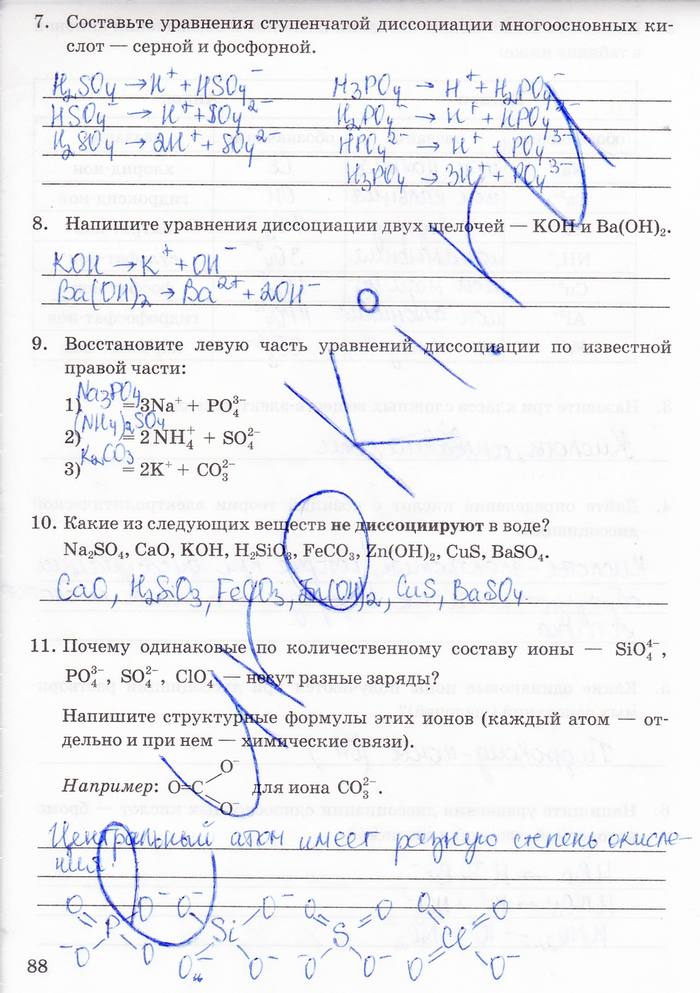 7. Составьте уравнения ступенчатой диссоциации многоосновных ки-
слот — серной и фосфорной.
H₂SO₄ → H⁺ + HSO₄⁻ H₃PO₄ → H⁺ + H₂PO₄⁻
HSO₄⁻ → H⁺ + SO₄²⁻ H₂PO₄⁻ → H⁺ + HPO₄²⁻
H₂SO₄ → 2H⁺ + SO₄²⁻ HPO₄²⁻ → H⁺ + PO₄³⁻
H₃PO₄ → 3H⁺ + PO₄³⁻
8. Напишите уравнения диссоциации двух щелочей — KOH и Ba(OH)₂.
KOH → K⁺ + OH⁻
Ba(OH)₂ → Ba²⁺ + 2OH⁻
9. Восстановите левую часть уравнений диссоциации по известной
правой части:
1) Na₃PO₄ = 3Na⁺ + PO₄³⁻
2) (NH₄)₂SO₄ = 2NH₄⁺ + SO₄²⁻
3) K₂CO₃ = 2K⁺ + CO₃²⁻
10. Какие из следующих веществ не диссоциируют в воде?
Na₂SO₄, CaO, KOH, H₂SiO₃, FeCO₃, Zn(OH)₂, CuS, BaSO₄.
CaO, H₂SiO₃, FeCO₃, Zn(OH)₂, CuS, BaSO₄.
11. Почему одинаковые по количественному составу ионы — SiO₄⁴⁻,
PO₄³⁻, SO₄²⁻, ClO₄⁻ — несут разные заряды?
Напишите структурные формулы этих ионов (каждый атом — от-
дельно и при нем — химические связи).
Например: O=C O⁻ O⁻ для иона CO₃²⁻.
Центральный атом имеет разную степень окисле-
ния.
O O⁻ O⁻ O⁻ O O O O
P Si S Cl
⁻O O ⁻O O⁻ ⁻O O⁻ O O⁻
88